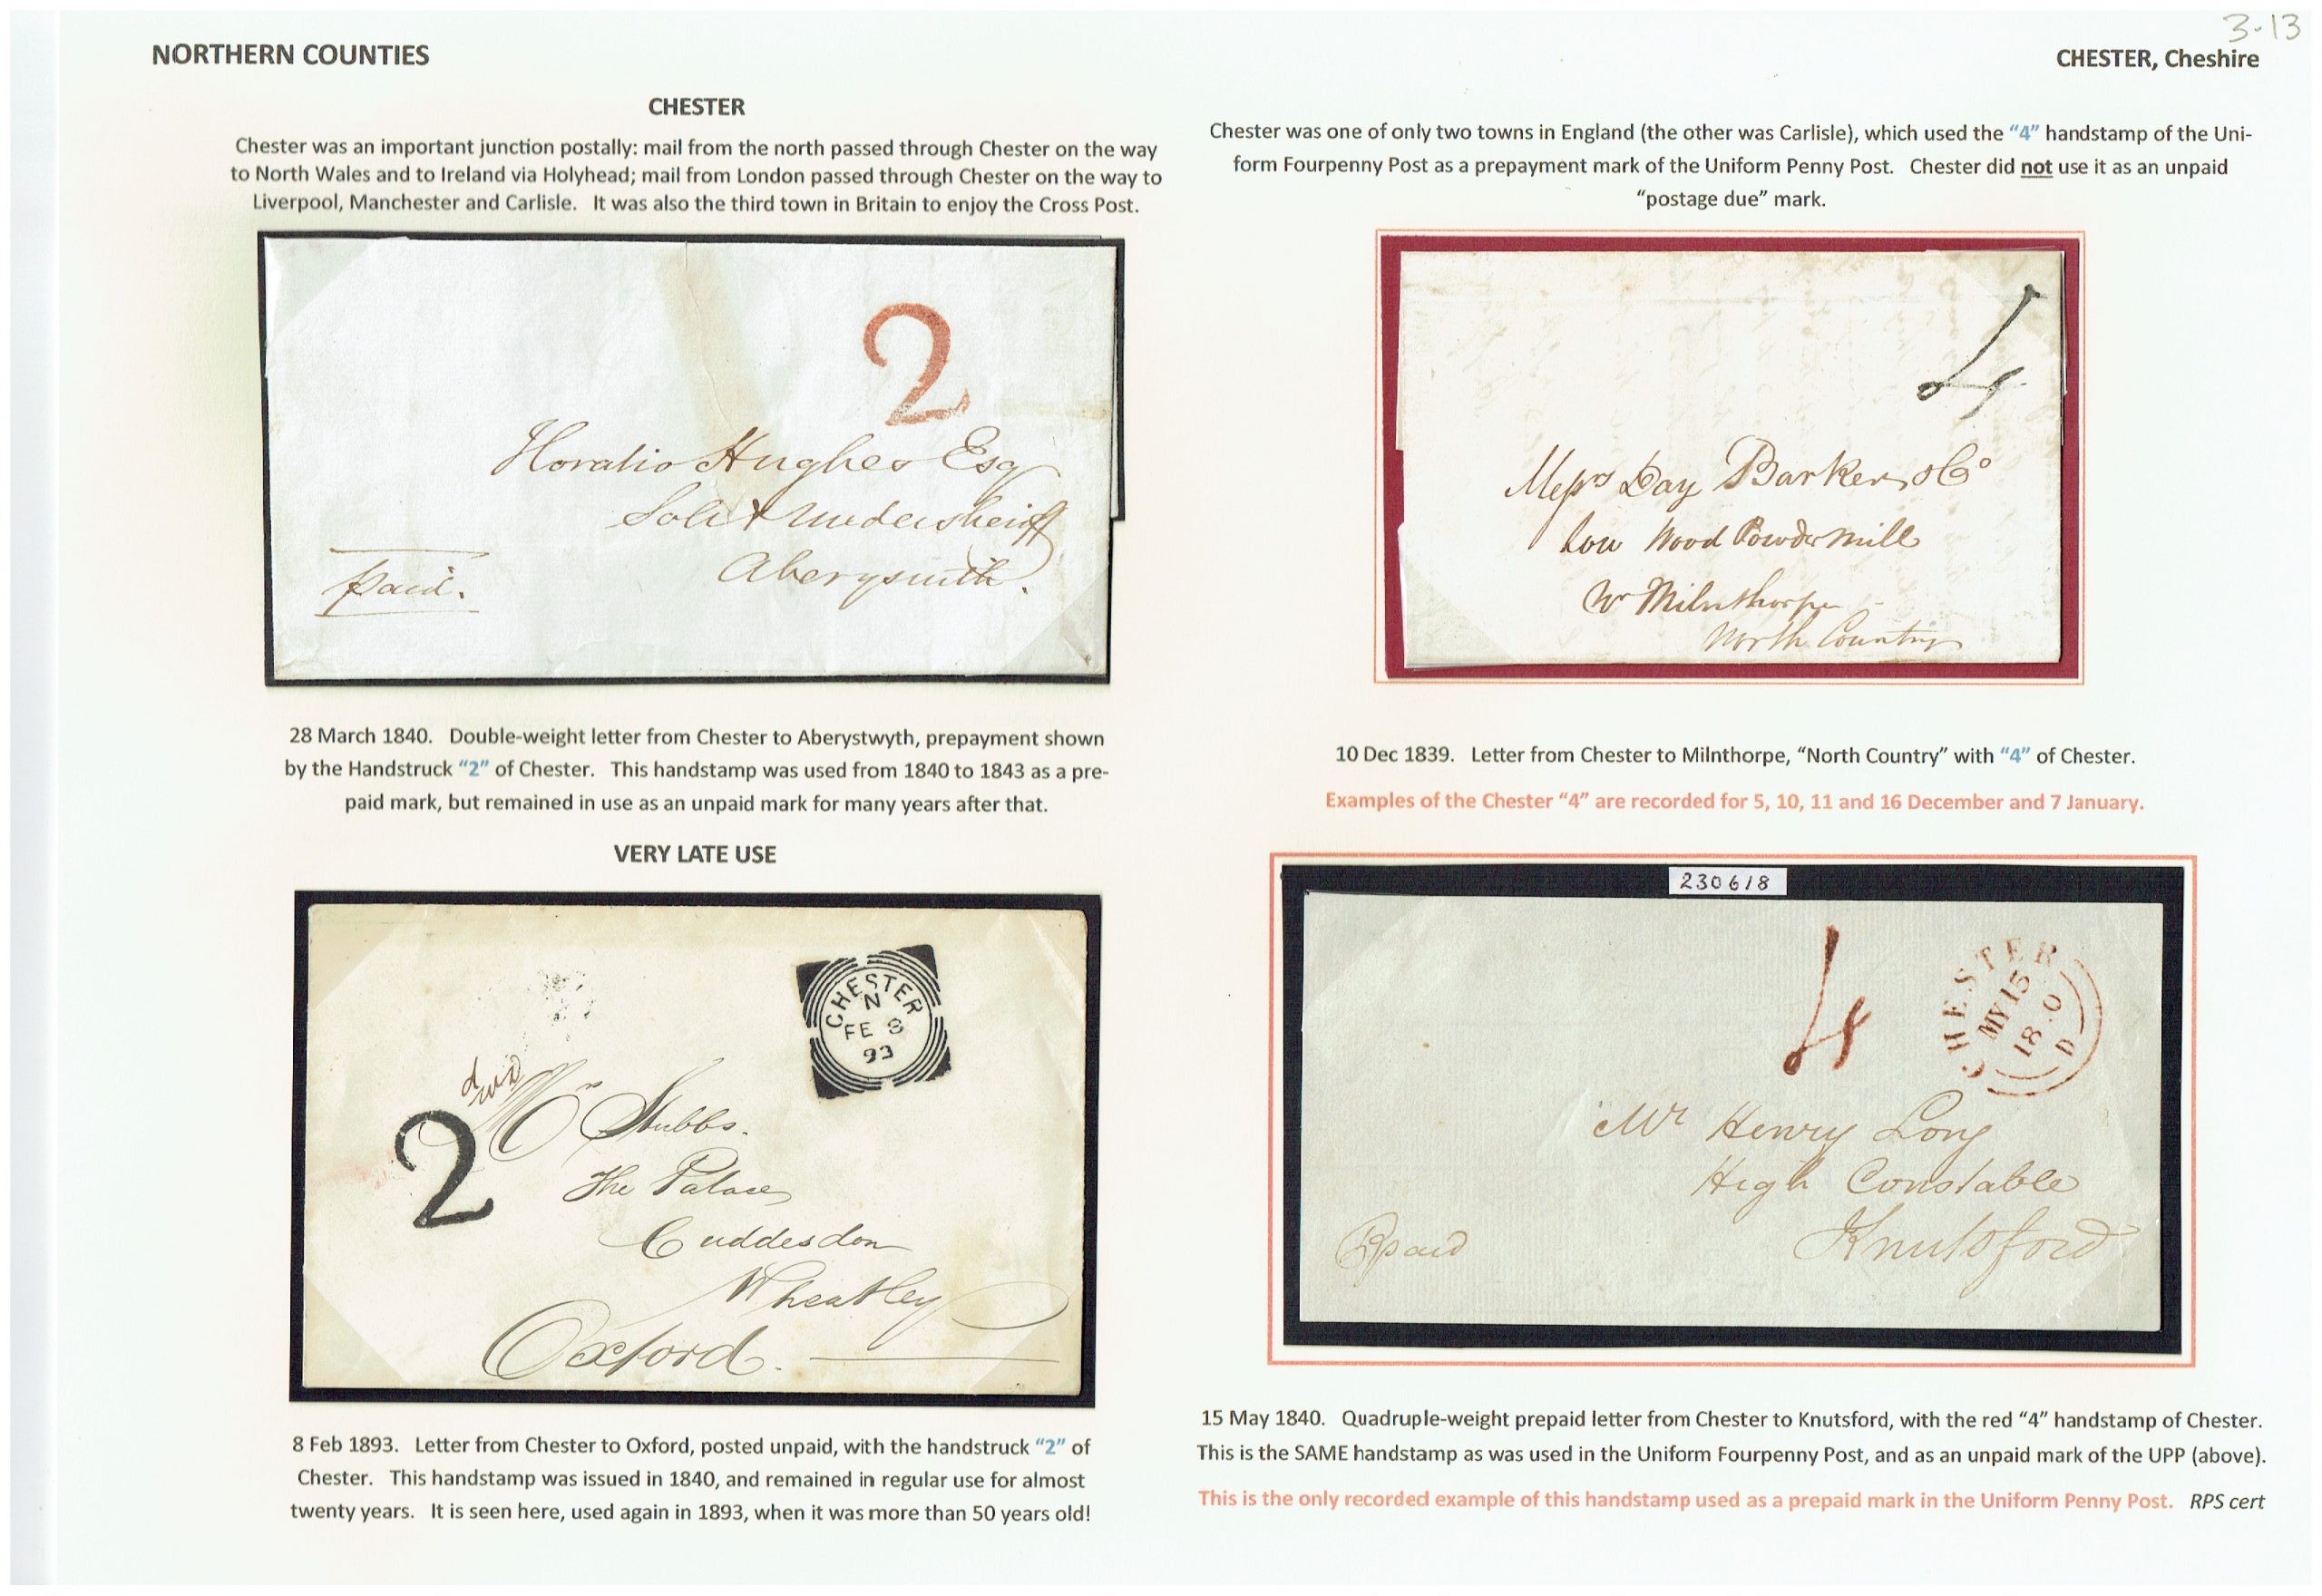 3-13
NORTHERN COUNTIES
CHESTER, Cheshire
CHESTER
Chester was an important junction postally: mail from the north passed through Chester on the way
to North Wales and to Ireland via Holyhead; mail from London passed through Chester on the way to
Liverpool, Manchester and Carlisle. It was also the third town in Britain to enjoy the Cross Post.
2
Horatio Hughes Esq
Solr & Undersheriff
Aberysmith.
Paid.
28 March 1840. Double-weight letter from Chester to Aberystwyth, prepayment shown
by the Handstruck “2” of Chester. This handstamp was used from 1840 to 1843 as a pre-
paid mark, but remained in use as an unpaid mark for many years after that.
VERY LATE USE
CHESTER
N
FE 8
93
2
Stubbs.
The Palace
Cuddesdon
Wheatley
Oxford.
8 Feb 1893. Letter from Chester to Oxford, posted unpaid, with the handstruck “2” of
Chester. This handstamp was issued in 1840, and remained in regular use for almost
twenty years. It is seen here, used again in 1893, when it was more than 50 years old!
Chester was one of only two towns in England (the other was Carlisle), which used the “4” handstamp of the Uni-
form Fourpenny Post as a prepayment mark of the Uniform Penny Post. Chester did not use it as an unpaid
“postage due” mark.
4
Messrs Day Barker & Co
Low Wood Powder Mill
Nr Milnthorpe
North Country
10 Dec 1839. Letter from Chester to Milnthorpe, “North Country” with “4” of Chester.
Examples of the Chester “4” are recorded for 5, 10, 11 and 16 December and 7 January.
230618
4
CHESTER
MY 15
18 0
D
Mr Henry Long
High Constable
Knutsford
Ppaid
15 May 1840. Quadruple-weight prepaid letter from Chester to Knutsford, with the red “4” handstamp of Chester.
This is the SAME handstamp as was used in the Uniform Fourpenny Post, and as an unpaid mark of the UPP (above).
This is the only recorded example of this handstamp used as a prepaid mark in the Uniform Penny Post. RPS cert